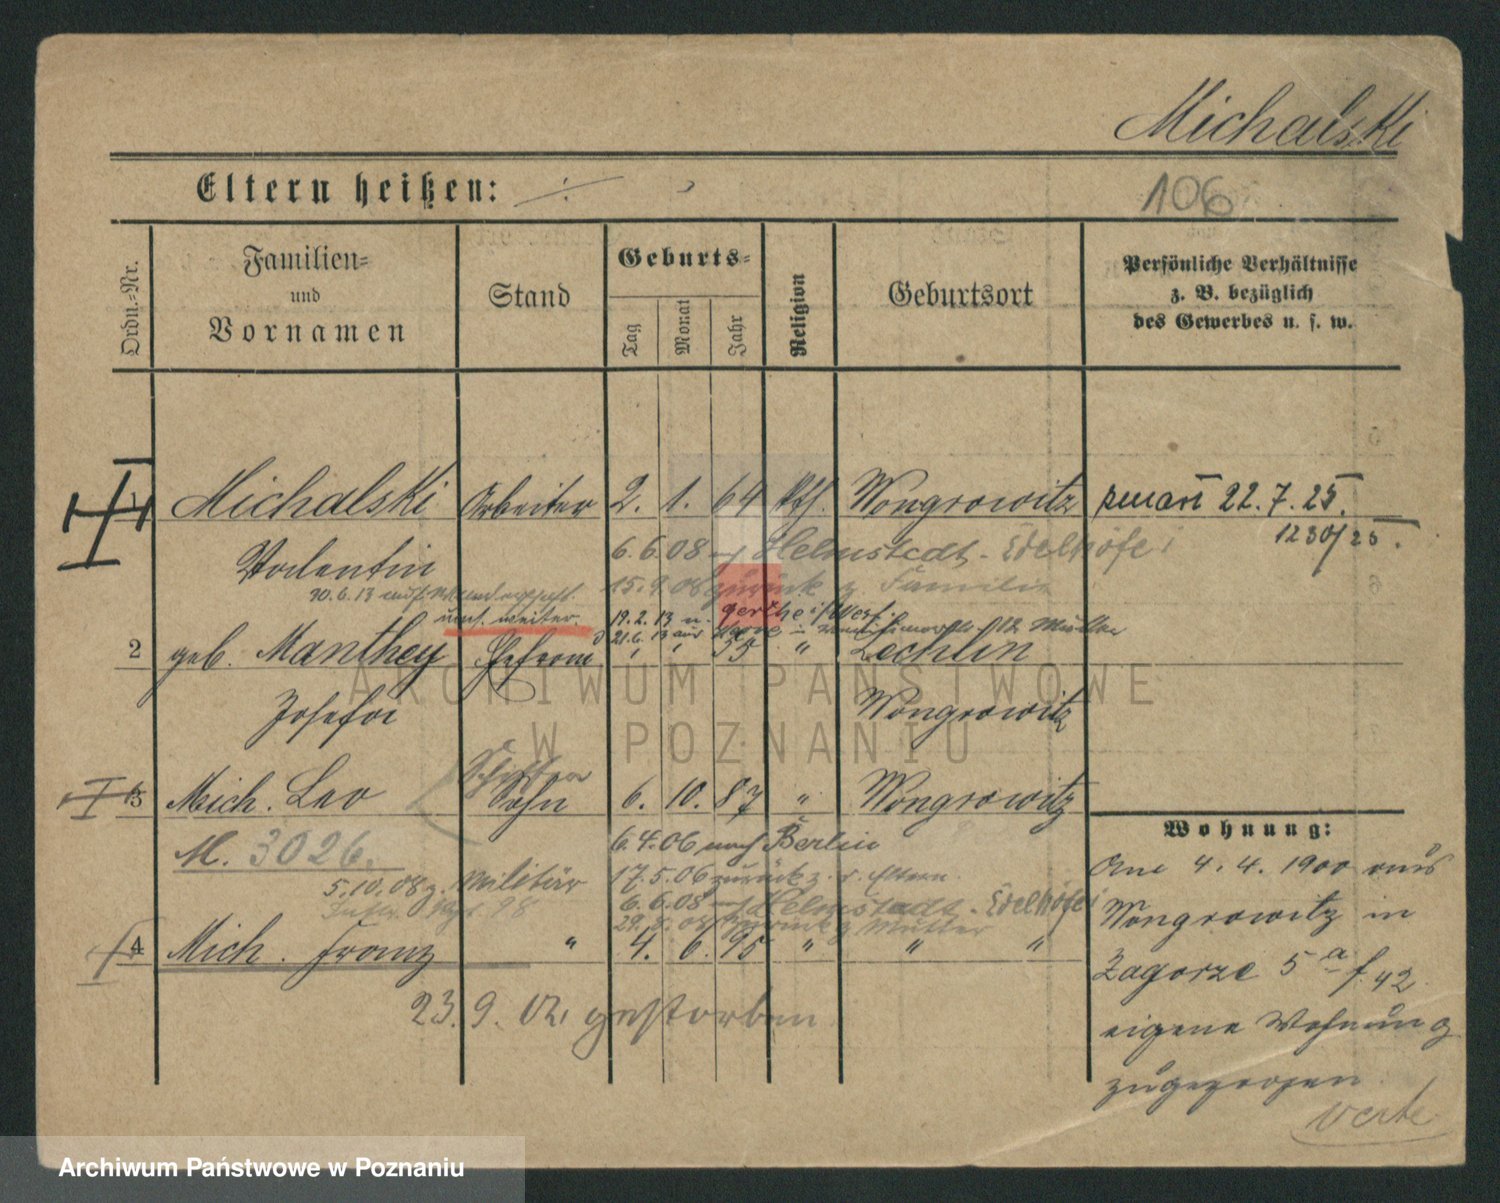 Michalski
Eltern heißen: ./.
106
Ordn.-Nr.
Familien-
und
Vornamen
Stand
Geburts-
Tag
Monat
Jahr
Religion
Geburtsort
Persönliche Verhältnisse
z. B. bezüglich
des Gewerbes u. s. w.
1 Michalski Arbeiter 2. 1. 64 Kth. Wongrowitz 22.7.25.
1230/25.
Valentin 6.6.08 Helmstedt - Edelhöfe
15.9.08 zurück z. Familie
30.6.13 auf Wanderschaft
weiter. 19.2.13 n. Gerthe i/Westf.
21.6.13 aus
2 geb. Manthey Ehefrau " " 55 " Lechlin
Josefa Wongrowitz
3 Mich. Leo Sohn 6. 10. 87 " Wongrowitz
M. 3026. 6.4.06 nach Berlin
5.10.08 z. Militär 17.5.06 zurück z. d. Eltern.
6.6.08 Helmstadt - Edelhöfe
29.8.08 zurück z. Mutter
4 Mich. Franz " 4. 6. 95 " " "
23.9.02. gestorben
Wohnung:
Am 4.4.1900 aus
Wongrowitz in
Zagorze 5a f. 42
eigene Wohnung
zugezogen
verte
ARCHIWUM PAŃSTWOWE
W POZNANIU
Archiwum Państwowe w Poznaniu